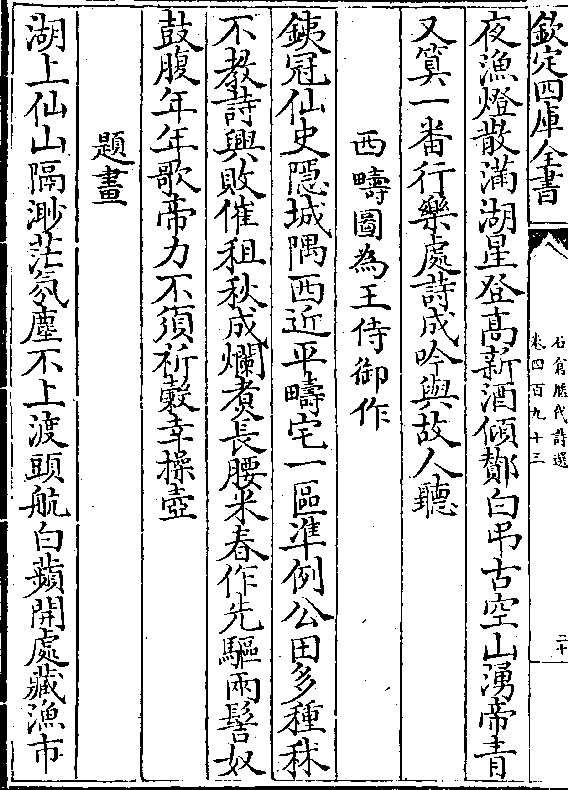 欽定四庫全書
石倉歷代詩選
卷四百九十三
二十
夜漁燈散滿湖星登高新酒傾鄼白弔古空山湧帝青
又算一番行樂處詩成吟與故人聽
西疇圖為王侍御作
銕冠仙史隱城隅西近平疇宅一區準例公田多種秫
不教詩興敗催租秋成爛煮長腰米春作先驅兩髻奴
鼓腹年年歌帝力不須祈糓幸操壺
題畫
湖上仙山隔渺茫氛塵不上渡頭航白蘋開處藏漁市